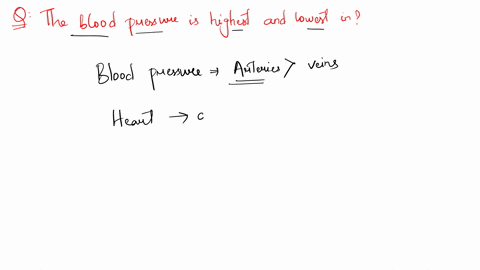 Q: The blood pressure is highest and lowest in?
Blood pressure ⇒ Arteries > veins
Heart → c